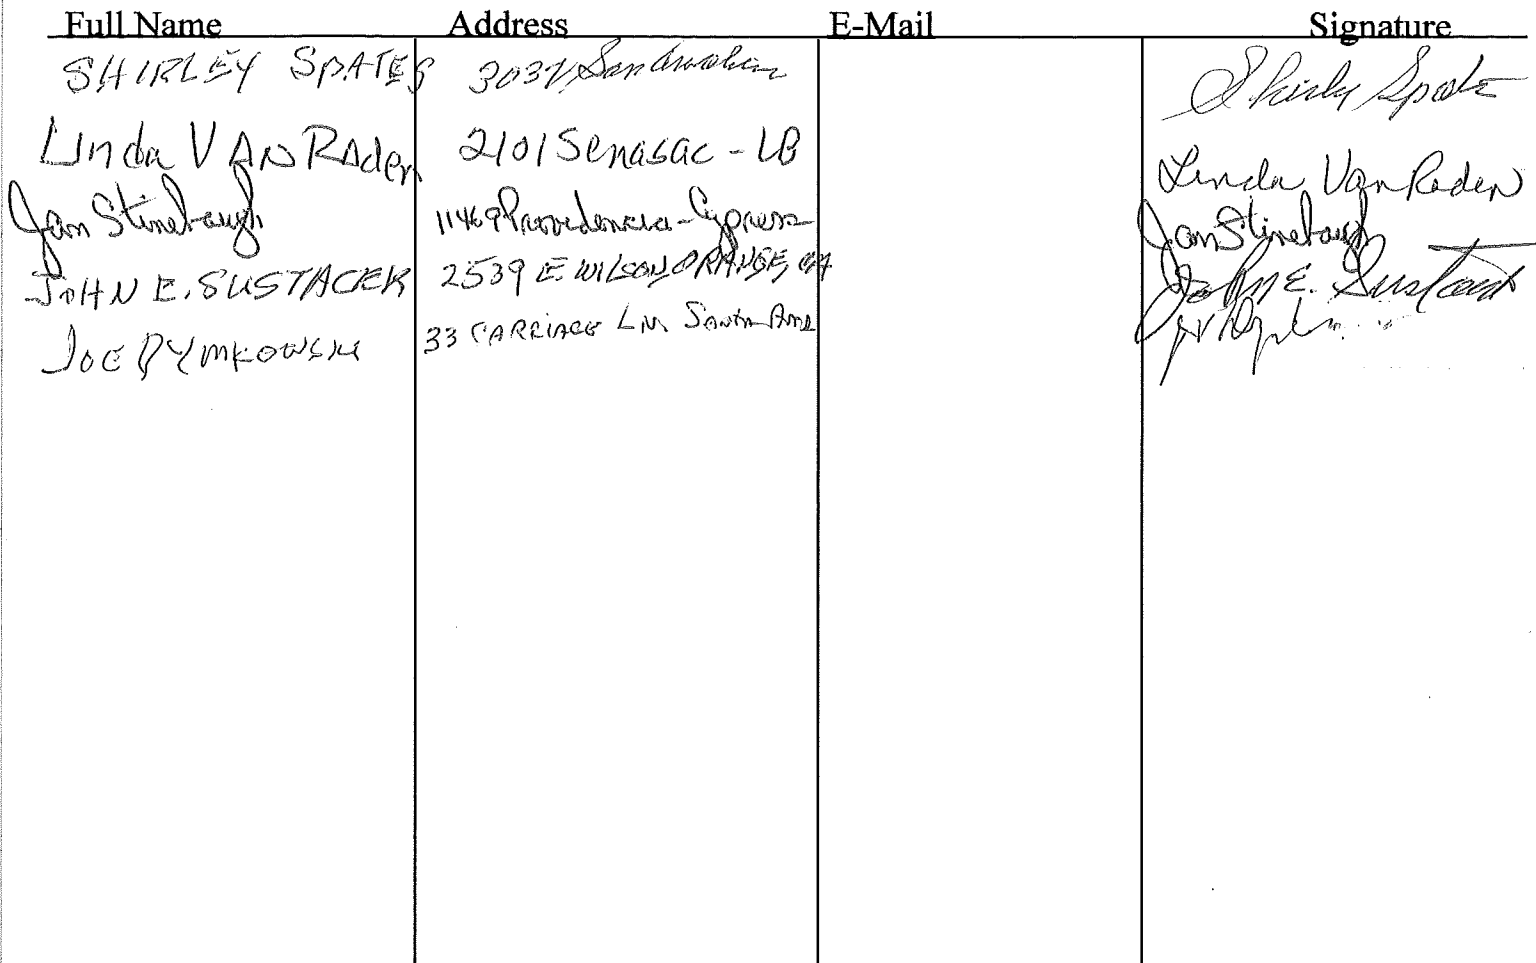 Full Name Address E-Mail Signature
SHIRLEY SPATES 3037 San Shirly Spates
Linda VAN RAden 2101 Senasac - LB Linda Van Raden
Jan Stinebaugh 11469 Providencia - Cypress Jan Stinebaugh
JOHN E. SUSTACEK 2539 E WILSON, ORANGE, CA John E. Sustacek
JOE DYMKOWSKI 33 CARRIAGE LN. SANTA ANA